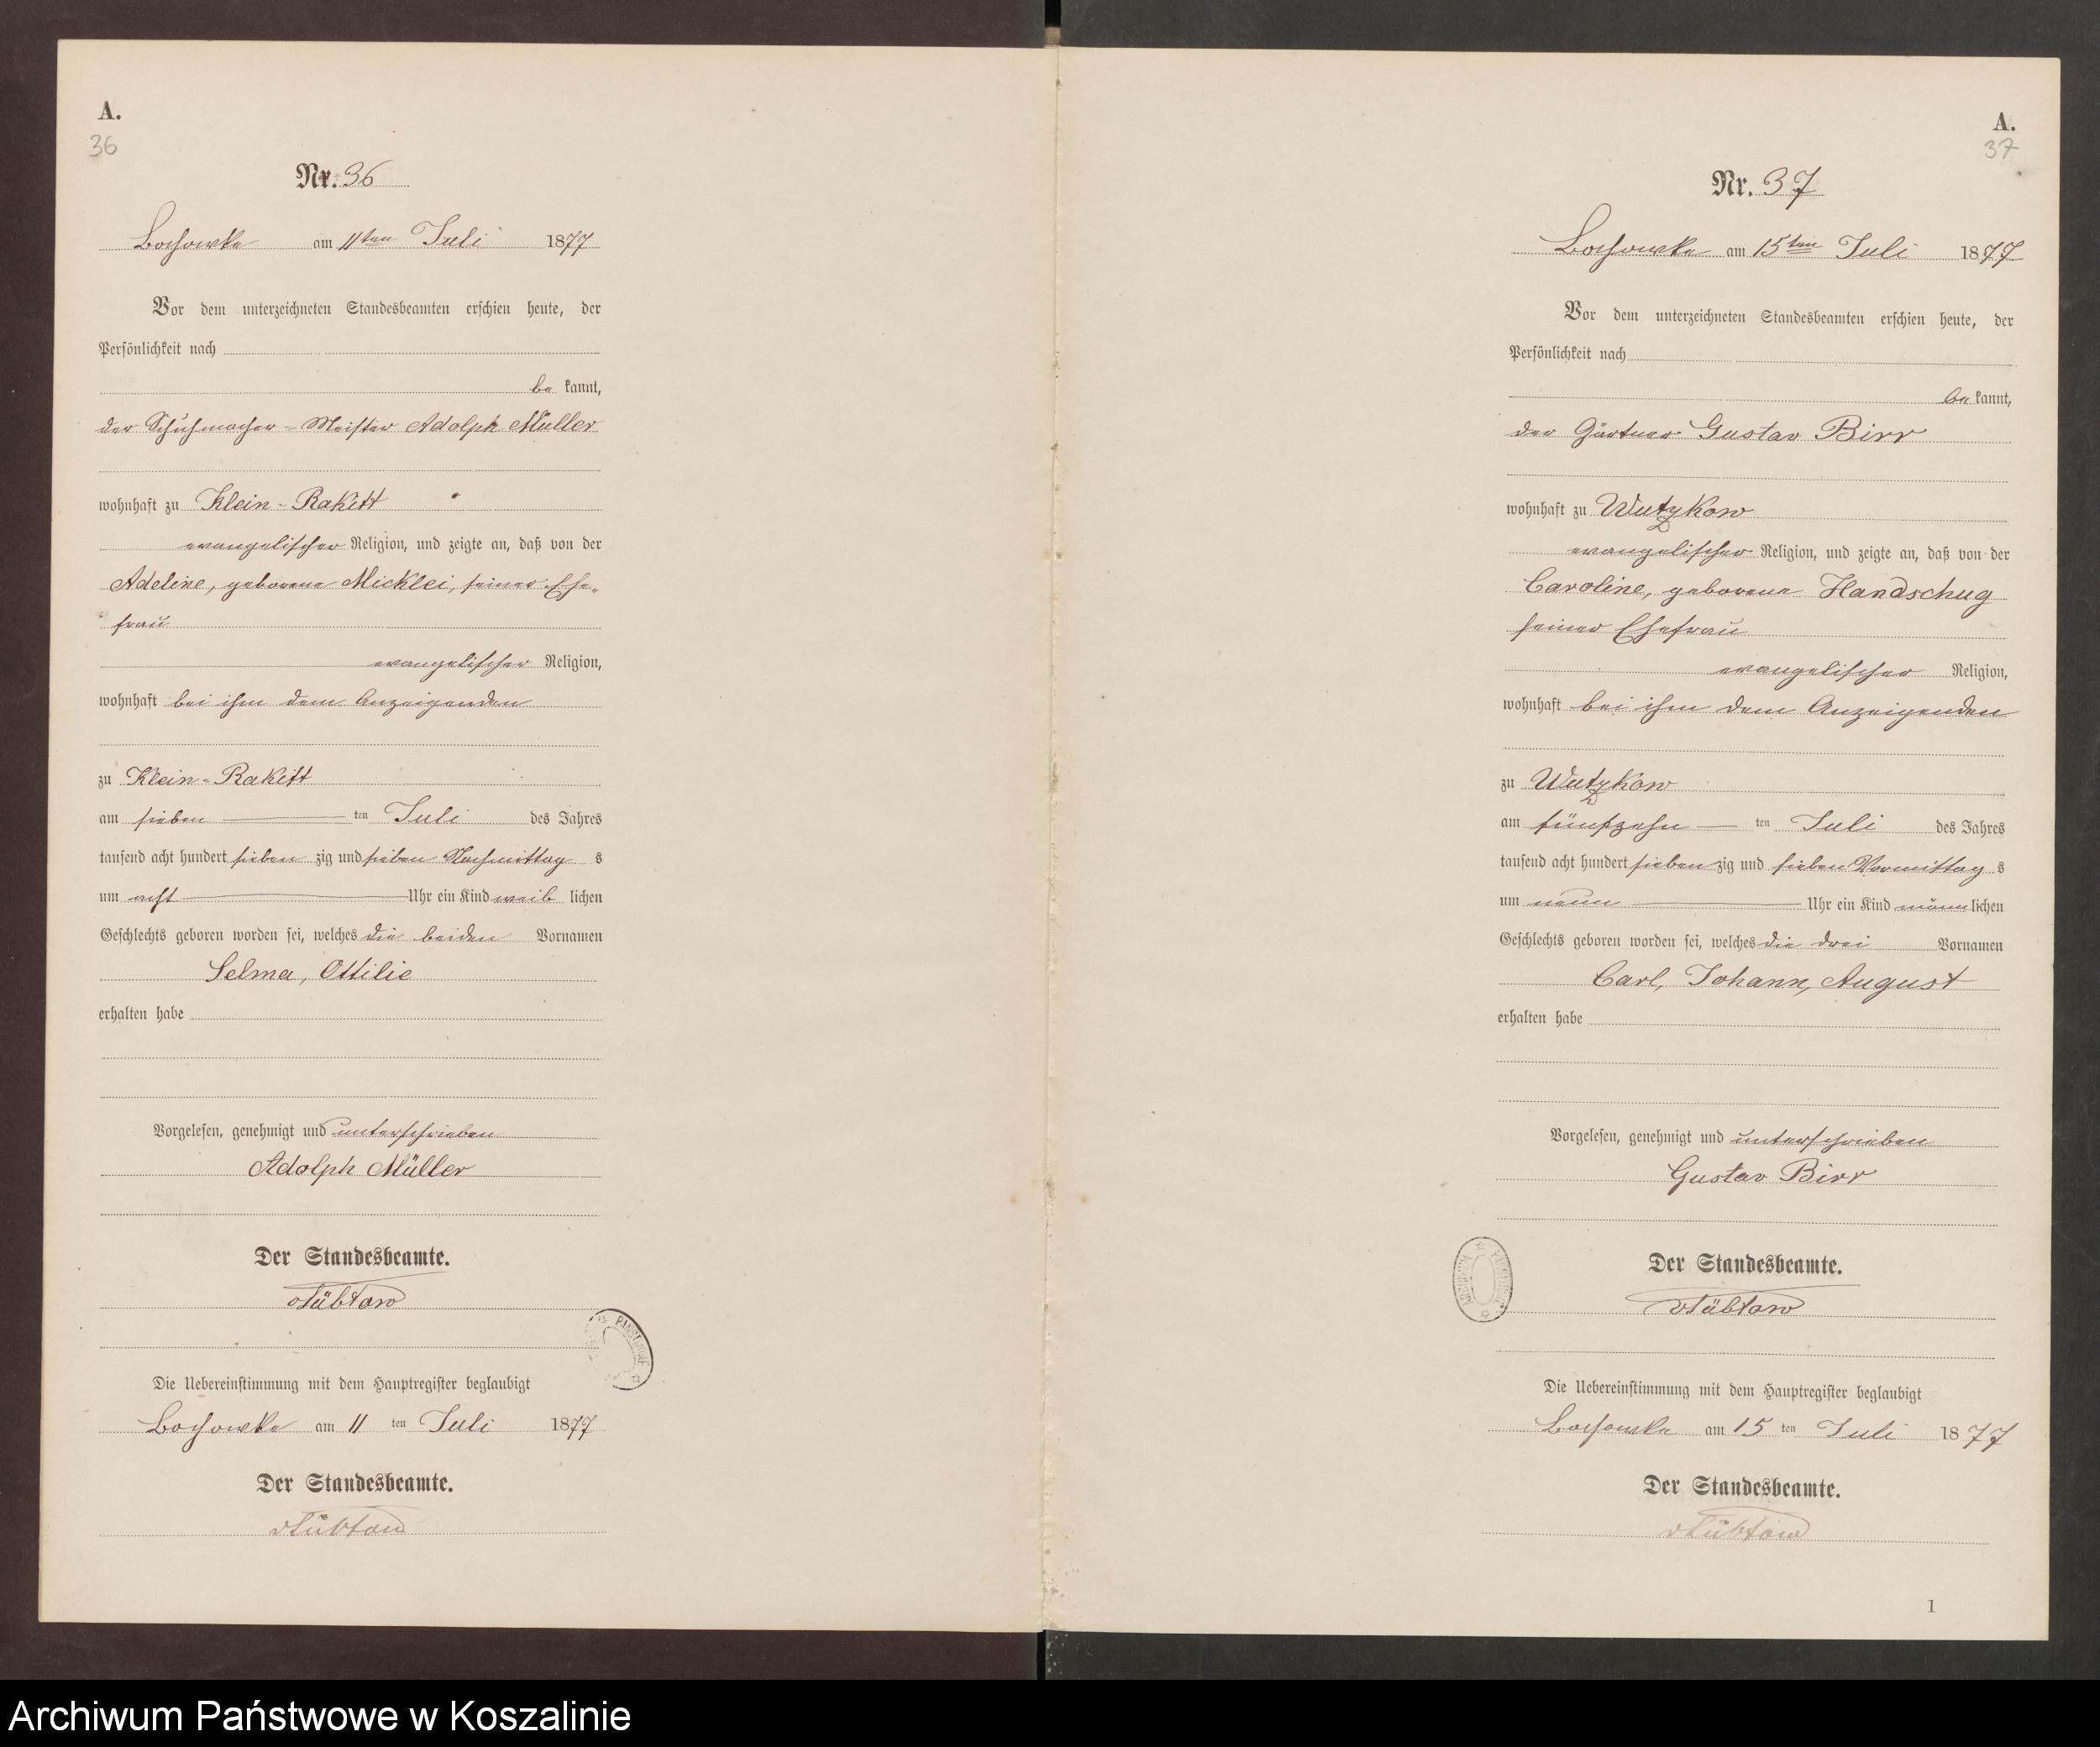 A.
36
Nr. 36
Bochowke am 11ten Juli 1877
Vor dem unterzeichneten Standesbeamten erschien heute, der
Persönlichkeit nach
be kannt,
der Schuhmacher-Meister Adolph Müller
wohnhaft zu Klein-Rakitt
evangelischer Religion, und zeigte an, daß von der
Adeline, geborene Micklei, seiner Ehe-
frau
evangelischer Religion,
wohnhaft bei ihm dem Anzeigenden
zu Klein-Rakitt
am sieben ten Juli des Jahres
tausend acht hundert sieben zig und sieben Nachmittag s
um acht Uhr ein Kind weib lichen
Geschlechts geboren worden sei, welches die beiden Vornamen
Selma, Ottilie
erhalten habe
Vorgelesen, genehmigt und unterschrieben
Adolph Müller
Der Standesbeamte.
vTübtow
Die Uebereinstimmung mit dem Hauptregister beglaubigt
Bochowke am 11 ten Juli 1877
Der Standesbeamte.
vTübtow
A.
37
Nr. 37
Bochowke am 15ten Juli 1877
Vor dem unterzeichneten Standesbeamten erschien heute, der
Persönlichkeit nach
be kannt,
der Gärtner Gustav Birr
wohnhaft zu Wutzkow
evangelischer Religion, und zeigte an, daß von der
Caroline, geborene Handschug
seiner Ehefrau
evangelischer Religion,
wohnhaft bei ihm dem Anzeigenden
zu Wutzkow
am fünfzehn ten Juli des Jahres
tausend acht hundert sieben zig und sieben Vormittag s
um neun Uhr ein Kind männ lichen
Geschlechts geboren worden sei, welches die drei Vornamen
Carl, Johann, August
erhalten habe
Vorgelesen, genehmigt und unterschrieben
Gustav Birr
Der Standesbeamte.
vTübtow
Die Uebereinstimmung mit dem Hauptregister beglaubigt
Bochowke am 15 ten Juli 1877
Der Standesbeamte.
vTübtow
1
Archiwum Państwowe w Koszalinie